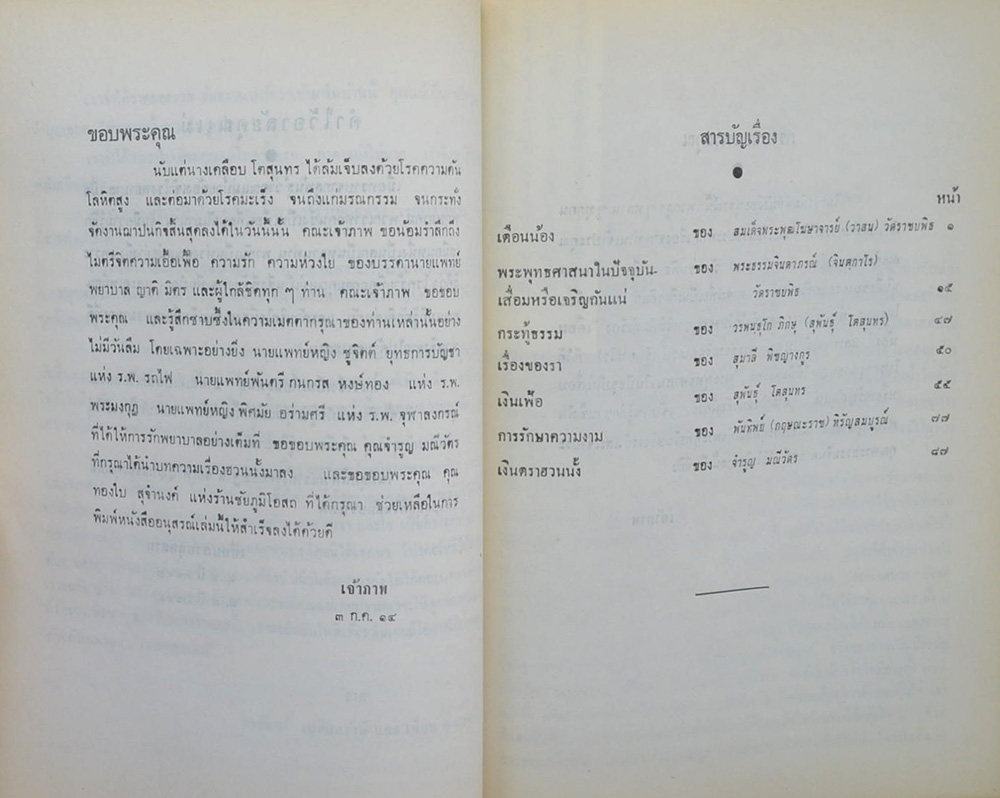 ขอบพระคุณ
นับแต่นางเคลือบ โตสุนทร ได้ล้มเจ็บลงด้วยโรคความดัน
โลหิตสูง และต่อมาด้วยโรคมะเร็ง จนถึงแก่มรณกรรม จนกระทั่ง
จัดงานฌาปนกิจสิ้นสุดลงได้ในวันนี้นั้น คณะเจ้าภาพ ขอน้อมรำลึกถึง
ไมตรีจิตความเอื้อเฟื้อ ความรัก ความห่วงใย ของบรรดานายแพทย์
พยาบาล ญาติ มิตร และผู้ใกล้ชิดทุก ๆ ท่าน คณะเจ้าภาพ ขอขอบ
พระคุณ และรู้สึกซาบซึ้งในความเมตตากรุณาของท่านเหล่านั้นอย่าง
ไม่มีวันลืม โดยเฉพาะอย่างยิ่ง นายแพทย์หญิง ชูจิตต์ ยุทธการบัญชา
แห่ง ร.พ. รถไฟ นายแพทย์พันตรี กนกรส หงษ์ทอง แห่ง ร.พ.
พระมงกุฎ นายแพทย์หญิง พิศมัย อร่ามศรี แห่ง ร.พ. จุฬาลงกรณ์
ที่ได้ให้การรักพยาบาลอย่างเต็มที่ ขอขอบพระคุณ คุณจำรูญ มณีวัตร
ที่กรุณาได้นำบทความเรื่องฮวนนั้งมาลง และขอขอบพระคุณ คุณ
ทองใบ สุจำนงค์ แห่งร้านชัยภูมิโอสถ ที่ได้กรุณา ช่วยเหลือในการ
พิมพ์หนังสืออนุสรณ์เล่มนี้ให้สำเร็จลงได้ด้วยดี
เจ้าภาพ
๓ ก.ค. ๑๔
สารบัญเรื่อง
หน้า
เตือนน้อง ของ สมเด็จพระพุฒโฆษาจารย์ (วาสน) วัดราชบพิธ ๑
พระพุทธศาสนาในปัจจุบัน- ของ พระธรรมจินดาภรณ์ (จินตกาโร)
เสื่อมหรือเจริญกันแน่ วัดราชบพิธ ๑๕
กระทู้ธรรม ของ วรพนฺธุโก ภิกษุ (สุพันธุ์ โตสุนทร) ๔๗
เรื่องของรา ของ สุมาลี พิชญางกูร ๕๐
เงินเฟ้อ ของ สุพันธุ์ โตสุนทร ๕๕
การรักษาความงาม ของ พันทิพย์ (กฤษณะราช) หิรัญสมบูรณ์ ๗๗
เงินตราฮวนนั้ง ของ จำรูญ มณีวัตร ๘๗